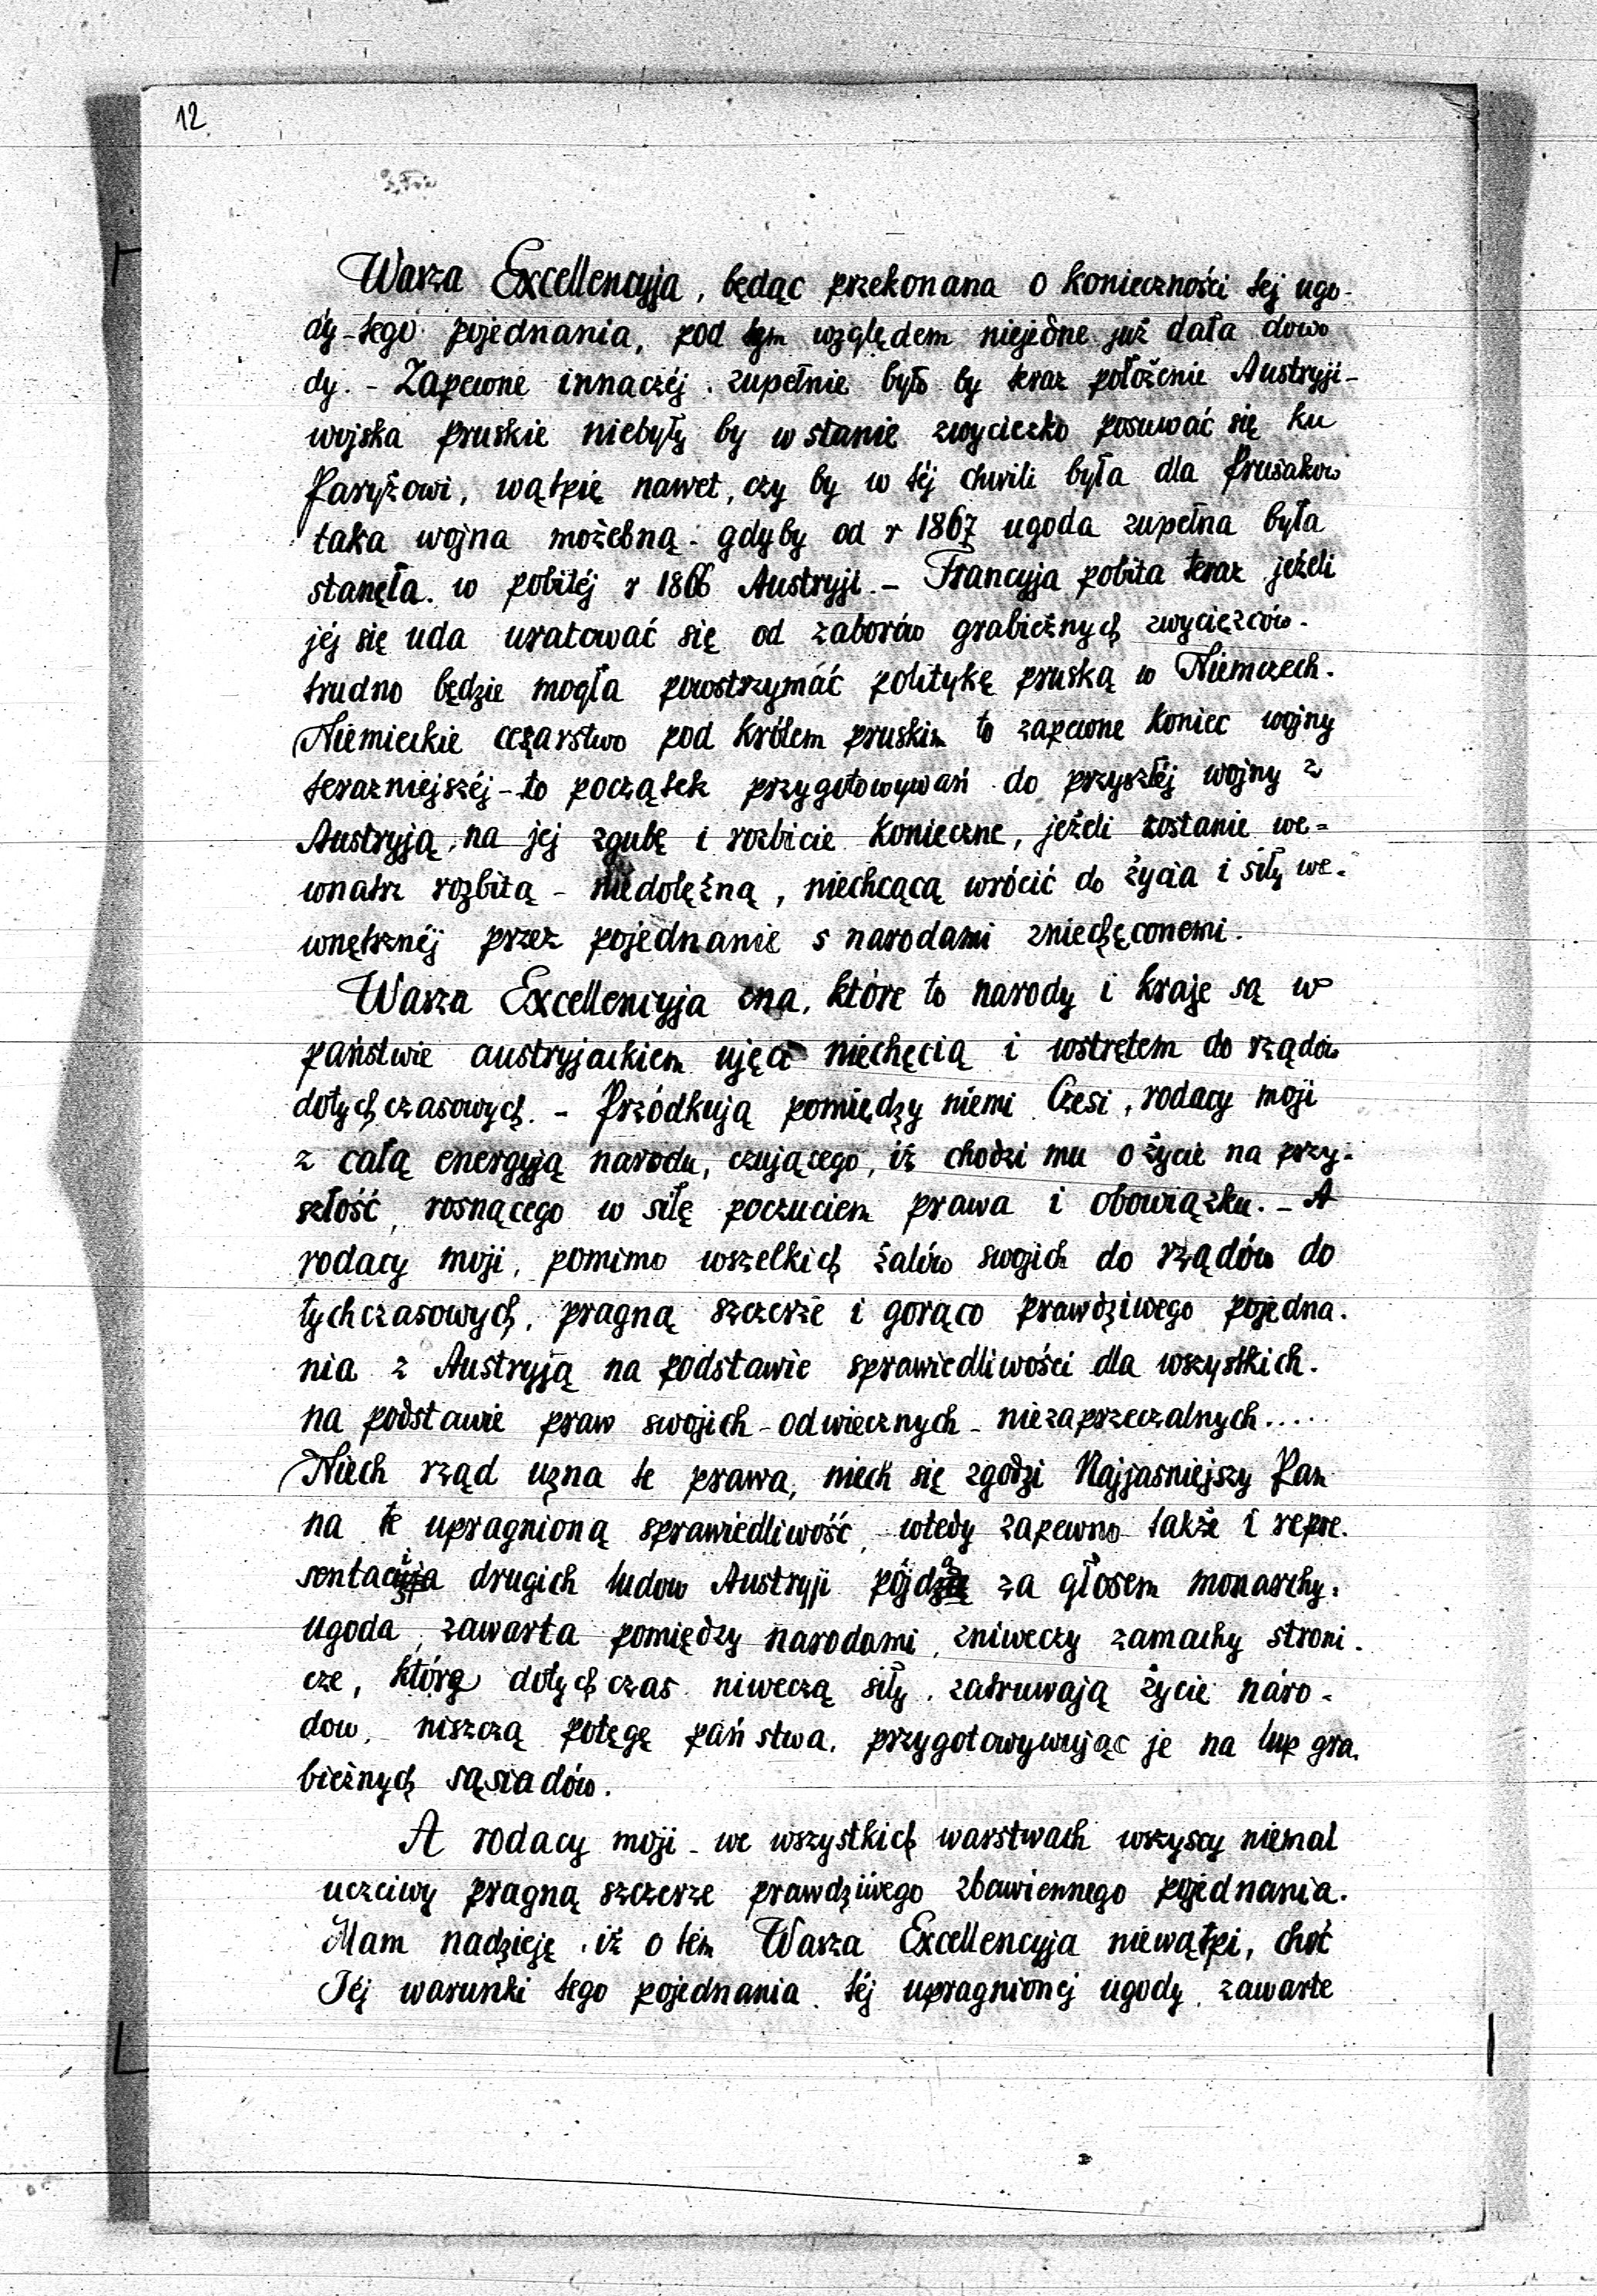 12
Wasza Excellencyja, będąc przekonana o konieczności téj ugo-
dy-tego pojednania, pod tym względem niejedne już dała dowo
dy. - Zapewne innaczéj zupełnie było by teraz położenie Austryji-
wojska pruskie niebyły by w stanie zwyciezko posuwać się ku
Paryżowi, wątpię nawet, czy by w téj chwili była dla Prusakow
taka wojna możebną - gdyby od r 1867 ugoda zupełna była
stanęła w pobitéj r 1866 Austryji. - Francyja pobita teraz jeżeli
jéj się uda uratować się od zaborów grabieżnych zwyciezców.
trudno będzie mogła powstrzymać politykę pruską w Niemczech.
Niemieckie cezarstwo pod królem pruskim to zapewne koniec wojny
terazniejszéj - to początek przygotowywań do przyszłéj wojny z
Austryją, na jej zgubę i rozbicie konieczne, jeżeli zostanie we=
wnatrz rozbitą - niedolężną, niechcącą wrócić do życia i siły we-
wnętrznéj przez pojednanie s narodami zniechęconemi.
Wasza Excellencyja zna, które to narody i kraje są w
państwie austryjackiem ujęci niechęcią i wstrętem do rządów
dotychczasowych. - Przódkują pomiędzy niemi Czesi, rodacy moji
z całą energyją narodu, czującego, iż chodzi mu o życie na przy-
szłość, rosnącego w siłę poczuciem prawa i obowiązku. - A
rodacy moji, pomimo wszelkich żalów swojich do rządów do
tychczasowych, pragną szczerze i gorąco prawdziwego pojedna-
nia z Austryją na podstawie sprawiedliwości dla wszystkich.
na podstawie praw swojich - odwiecznych - niezaprzeczalnych....
Niech rząd uzna te prawa, niech się zgodzi Najjasniejszy Pan
na te upragnioną sprawiedliwość, wtedy zapewno także i repre-
sentacije drugich ludow Austryji pójdą za głosem monarchy.
ugoda, zawarta pomiędzy narodami, zniweczy zamachy stroni-
cze, które dotychczas niweczą siły, zatruwają życie náro-
dow, niszczą potęgę państwa, przygotowywując je na lup gra-
bieżnych sąsiadów.
A rodacy moji - we wszystkich warstwach wszyscy niemal
uczciwy pragną szczerze prawdziwego zbawiennego pojednania.
Mam nadzieję, iż o tém Wasza Excellencyja niewątpi, choć
Jéj warunki tego pojednania, téj upragnionej ugody, zawarte